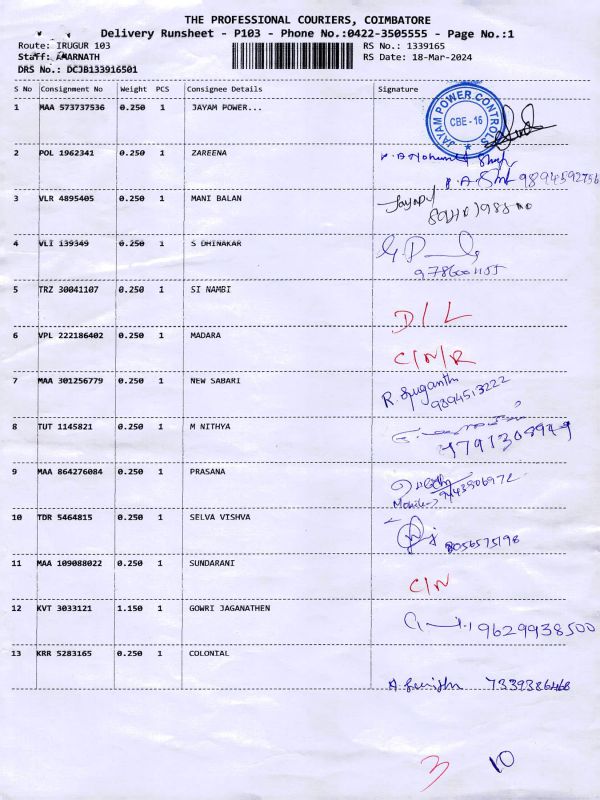 THE PROFESSIONAL COURIERS, COIMBATORE
Delivery Runsheet - P103 - Phone No.:0422-3505555 - Page No.:1
Route: IRUGUR 103 RS No.: 1339165
Staff: AMARNATH RS Date: 18-Mar-2024
DRS No.: DCJB133916501
S No Consignment No Weight PCS Consignee Details Signature
1 MAA 573737536 0.250 1 JAYAM POWER...
JAYAM POWER CONTROLS
CBE - 16
2 POL 1962341 0.250 1 ZAREENA
9894592756
3 VLR 4895405 0.250 1 MANI BALAN
4 VLI 139349 0.250 1 S DHINAKAR
5 TRZ 30041107 0.250 1 SI NAMBI
D/L
6 VPL 222186402 0.250 1 MADARA
C/N/R
7 MAA 301256779 0.250 1 NEW SABARI
R. Suganthi
9894513222
8 TUT 1145821 0.250 1 M NITHYA
9 MAA 864276084 0.250 1 PRASANA
Mobile→
10 TDR 5464815 0.250 1 SELVA VISHVA
8056575198
11 MAA 109088022 0.250 1 SUNDARANI
C/N
12 KVT 3033121 1.150 1 GOWRI JAGANATHEN
9629938500
13 KRR 5283165 0.250 1 COLONIAL
7339386468
3 10